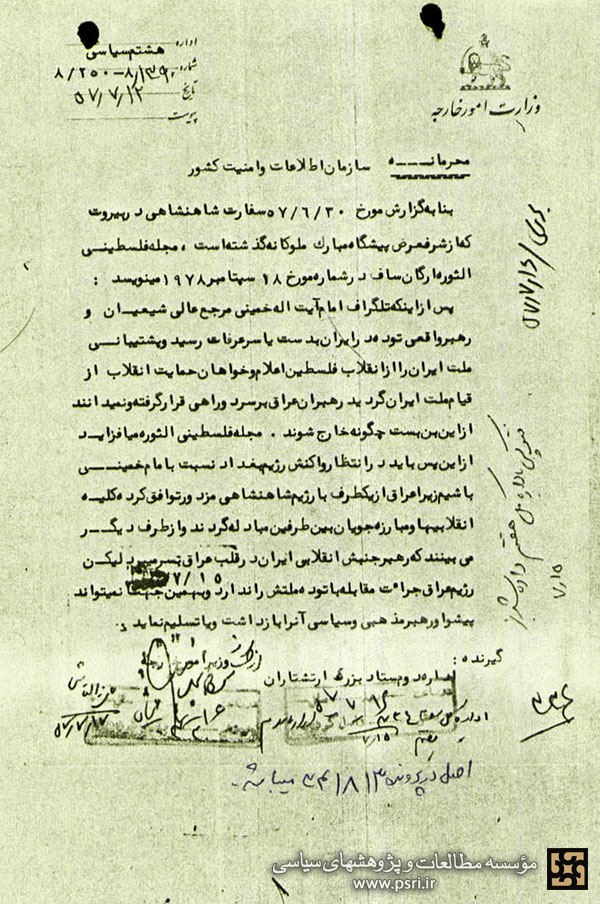 وزارت امور خارجه
اداره هشتم سیاسی
شماره ۸/۲۵۰-۸/۱۳۹۰
تاریخ ۵۷/۷/۱۲
پیوست
محرمانـــه سازمان اطلاعات و امنیت کشور
بنا به گزارش مورخ ۵۷/۶/۳۰ سفارت شاهنشاهی در بیروت
که از شرفعرض پیشگاه مبارك ملوکانه گذشته است، مجله فلسطینی
الثوره ارگان ساف در شماره مورخ ۱۸ سپتامبر ۱۹۷۸ مینویسد :
پس از اینکه تلگراف امام آیت اله خمینی مرجع عالی شیعیـان و
رهبر واقعی توده در ایران بدست یاسر عرفات رسید و پشتیبانـی
ملت ایران را از انقلاب فلسطین اعلام و خواهان حمایت انقلاب از
قیام ملت ایران گردید رهبران عراق بر سر دوراهی قرار گرفته و نمیدانند
از این بن بست چگونه خارج شوند . مجله فلسطینی الثوره میافزاید
از این پس باید در انتظار واکنش رژیم بغداد نسبت با مام خمینـی
باشیم زیرا عراق از یکطرف با رژیم شاهنشاهی مزدور توافق کرده کلیه
انقلابیها و مبارزه جویان بین طرفین مبادله گردند و از طرف دیگـر
می بینند که رهبر جنبش انقلابی ایران در قلب عراق بسر میبرد لیکن
رژیم عراق جراٴت مقابله با توده ملتش را ندارد و بهمین جهت نمیتواند
پیشوا و رهبر مذهبی و سیاسی آنرا بازداشت و یا تسلیم نماید .
۷/۱۵
از طرف وزیر امور خارجه
گیرنده :
اداره دوم ستاد بزرگ ارتشتاران
۵۷/۷/۱۷
۷/۱۵
اصل در پرونده میباشد.
مؤسسه مطالعات و پژوهشهای سیاسی
www.psri.ir